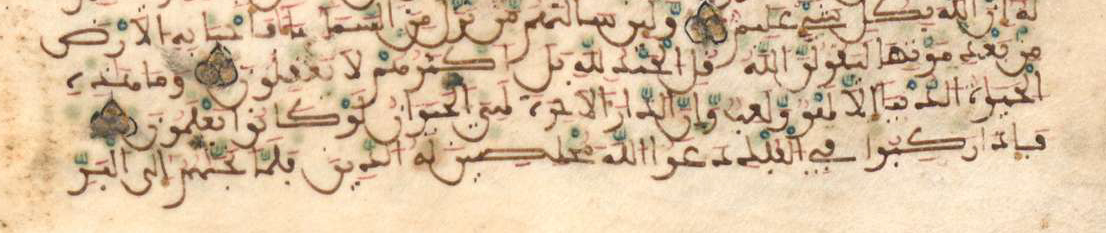 له إن الله بكل شيء عليم ولين سألتهم من نزل من السماء ماء فأحيا به الأرض
من بعد موتها ليقولن الله قل الحمد لله بل أكثرهم لا يعقلون وما هذه
الحيوة الدنيا إلا لهو ولعب وإن الدار الآخرة لهي الحيوان لو كانوا يعلمون
فإذا ركبوا في الفلك دعوا الله مخلصين له الدين فلما نجيهم إلى البر